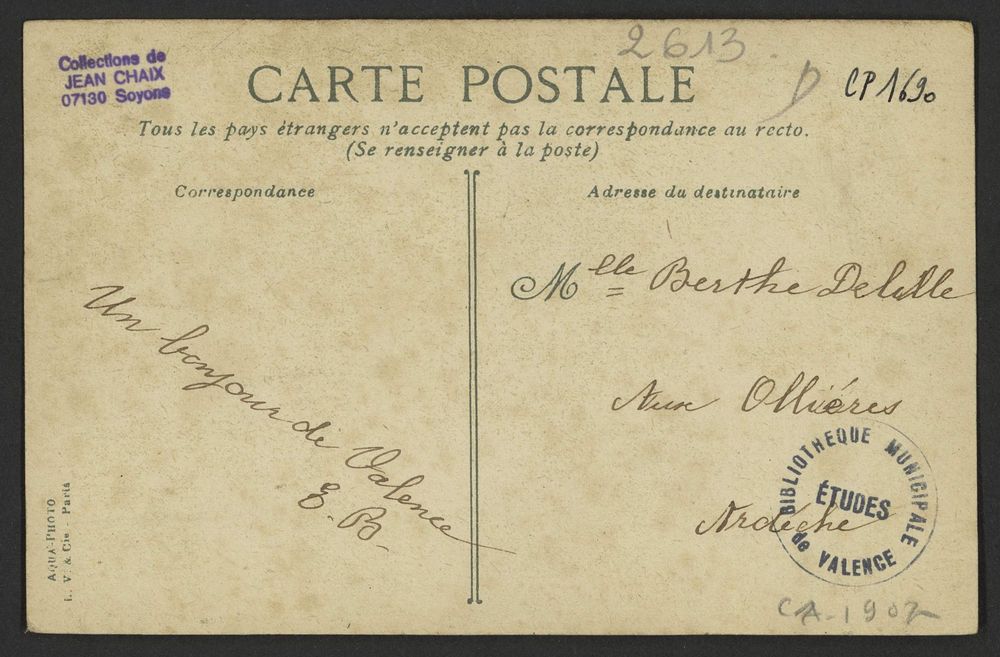 Collections de
JEAN CHAIX
07130 Soyons
2613
CP 1690
CARTE POSTALE
Tous les pays étrangers n'acceptent pas la correspondance au recto.
(Se renseigner à la poste)
Correspondance
Adresse du destinataire
Un bonjour de Valence
E. B.
Mlle Berthe Delalle
Aux Ollières
Ardèche
BIBLIOTHEQUE MUNICIPALE
ÉTUDES
de VALENCE
CA. 1907
AQUA-PHOTO
L. V. & Cie - Paris